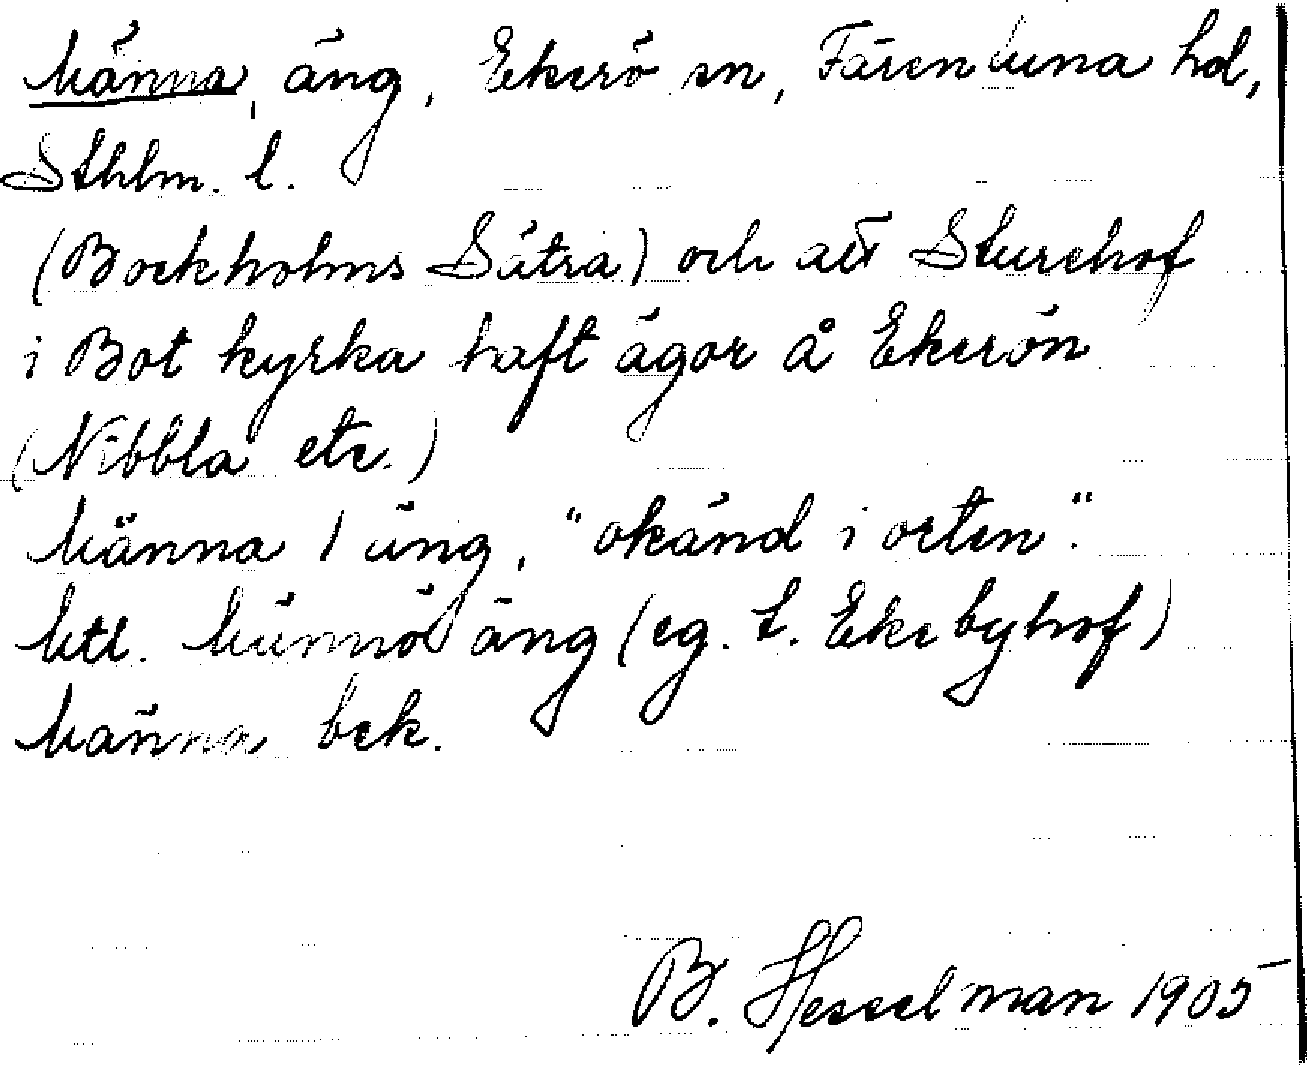 Männa, äng, Ekerö sn, Färentuna hd,
Sthlm. l.
(Bockholms Sätra) och att Sturehof
i Botkyrka haft ägor å Ekerön
(Nibbla etc.)
Männa / äng, "okänd i orten".
äng (eg. t. Ekebyhof)
Männa bek.
B. Hesselman 1905